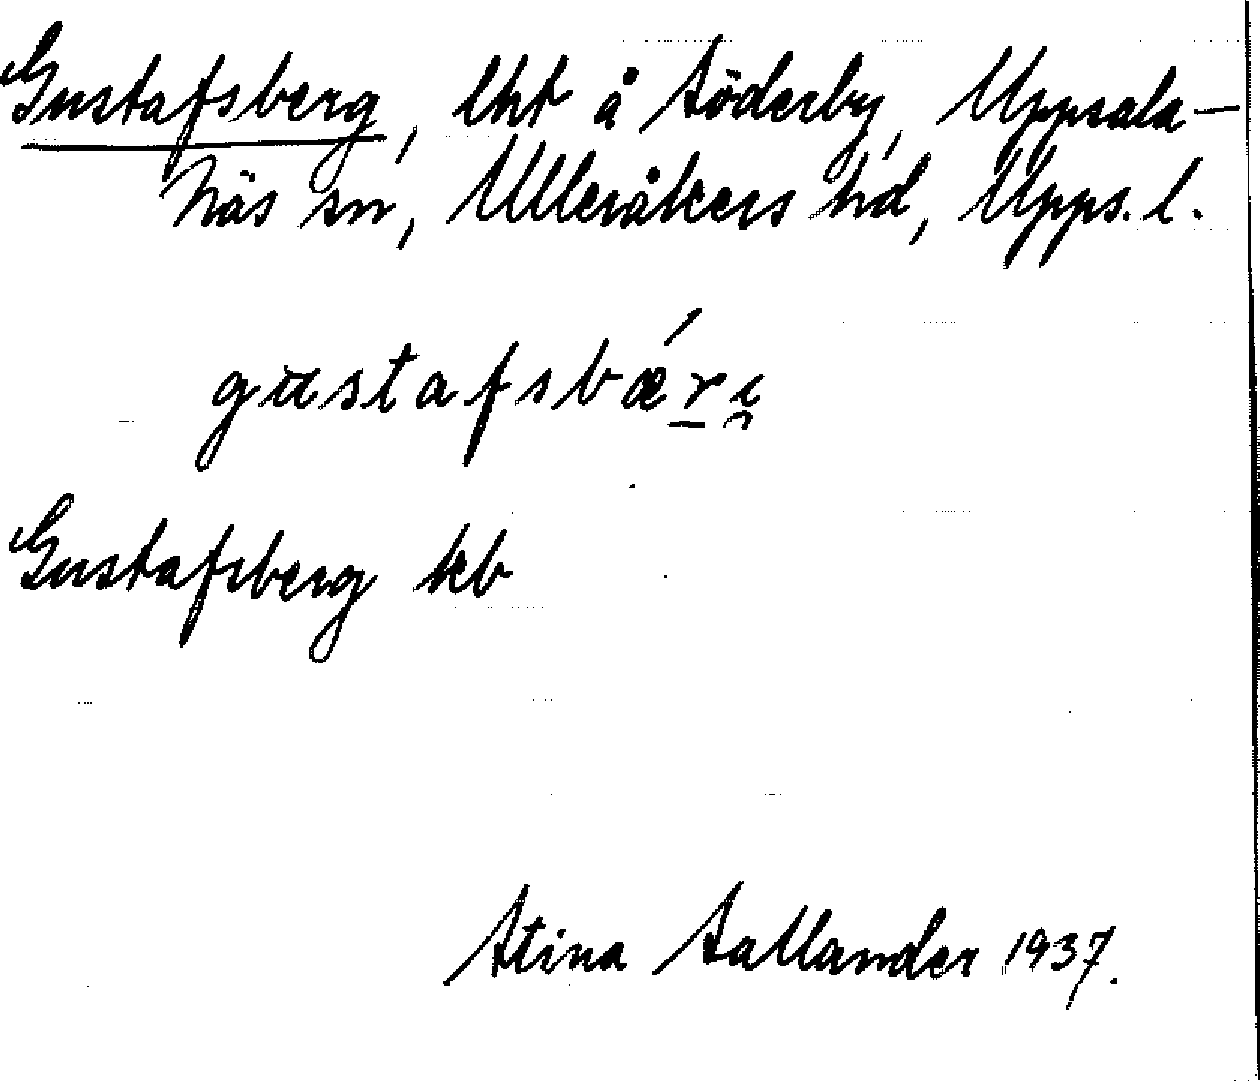 Gustafsberg, lht å Söderby, Uppsala-
Näs sn, Ulleråkers hd, Upps. l.
gustafsbæ´ri̯
Gustafsberg kb
Stina Sallander 1937.